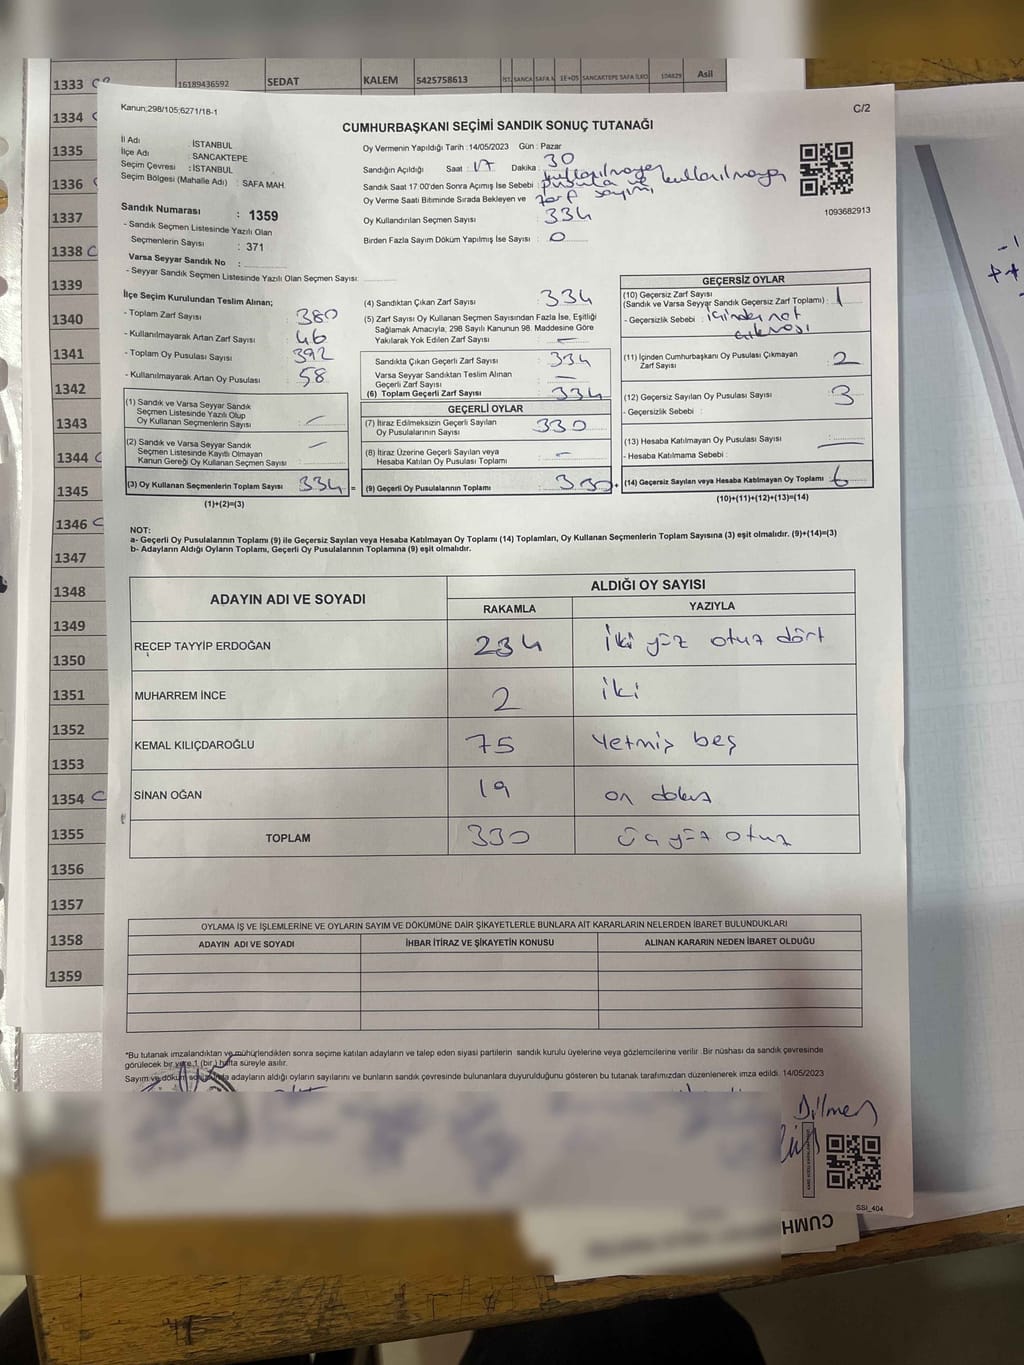 1333
16189436592 SEDAT KALEM 5425758613 SANCAKTEPE SAFA İLKO 104829 Asil
1334
1335
1336
1337
1338
1339
1340
1341
1342
1343
1344
1345
1346
1347
1348
1349
1350
1351
1352
1353
1354
1355
1356
1357
1358
1359
Kanun;298/105;6271/18-1
C/2
CUMHURBAŞKANI SEÇİMİ SANDIK SONUÇ TUTANAĞI
İl Adı : İSTANBUL
İlçe Adı : SANCAKTEPE
Seçim Çevresi : İSTANBUL
Seçim Bölgesi (Mahalle Adı) : SAFA MAH.
Sandık Numarası : 1359
- Sandık Seçmen Listesinde Yazılı Olan
Seçmenlerin Sayısı : 371
Varsa Seyyar Sandık No :
- Seyyar Sandık Seçmen Listesinde Yazılı Olan Seçmen Sayısı:
Oy Vermenin Yapıldığı Tarih :14/05/2023 Gün : Pazar
Sandığın Açıldığı Saat : 17 Dakika : 30
Sandık Saat 17:00'den Sonra Açımış İse Sebebi : kullanılmayan pusula ve kullanılmayan
zarf sayımı
Oy Verme Saati Bitiminde Sırada Bekleyen ve
Oy Kullandırılan Seçmen Sayısı : 334
Birden Fazla Sayım Döküm Yapılmış İse Sayısı : 0
1093682913
İlçe Seçim Kurulundan Teslim Alınan;
- Toplam Zarf Sayısı : 380
- Kullanılmayarak Artan Zarf Sayısı : 46
- Toplam Oy Pusulası Sayısı : 392
- Kullanılmayarak Artan Oy Pusulası : 58
(1) Sandık ve Varsa Seyyar Sandık
Seçmen Listesinde Yazılı Olup
Oy Kullanan Seçmenlerin Sayısı : -
(2) Sandık ve Varsa Seyyar Sandık
Seçmen Listesinde Kayıtlı Olmayan
Kanun Gereği Oy Kullanan Seçmen Sayısı : -
(3) Oy Kullanan Seçmenlerin Toplam Sayısı : 334 =
(1)+(2)=(3)
(4) Sandıktan Çıkan Zarf Sayısı : 334
(5) Zarf Sayısı Oy Kullanan Seçmen Sayısından Fazla İse, Eşitliği
Sağlamak Amacıyla, 298 Sayılı Kanunun 98. Maddesine Göre
Yakılarak Yok Edilen Zarf Sayısı : -
Sandıkta Çıkan Geçerli Zarf Sayısı : 334
Varsa Seyyar Sandıktan Teslim Alınan
Geçerli Zarf Sayısı : -
(6) Toplam Geçerli Zarf Sayısı : 334
GEÇERLİ OYLAR
(7) İtiraz Edilmeksizin Geçerli Sayılan
Oy Pusulalarının Sayısı : 330
(8) İtiraz Üzerine Geçerli Sayılan veya
Hesaba Katılan Oy Pusulası Toplamı : -
(9) Geçerli Oy Pusulalarının Toplamı : 330 +
GEÇERSİZ OYLAR
(10) Geçersiz Zarf Sayısı
(Sandık ve Varsa Seyyar Sandık Geçersiz Zarf Toplamı) : 1
- Geçersizlik Sebebi : içinden not
çıkması
(11) İçinden Cumhurbaşkanı Oy Pusulası Çıkmayan
Zarf Sayısı : 2
(12) Geçersiz Sayılan Oy Pusulası Sayısı : 3
- Geçersizlik Sebebi :
(13) Hesaba Katılmayan Oy Pusulası Sayısı : -
- Hesaba Katılmama Sebebi :
(14) Geçersiz Sayılan veya Hesaba Katılmayan Oy Toplamı : 6
(10)+(11)+(12)+(13)=(14)
NOT:
a- Geçerli Oy Pusulalarının Toplamı (9) ile Geçersiz Sayılan veya Hesaba Katılmayan Oy Toplamı (14) Toplamları, Oy Kullanan Seçmenlerin Toplam Sayısına (3) eşit olmalıdır. (9)+(14)=(3)
b- Adayların Aldığı Oyların Toplamı, Geçerli Oy Pusulalarının Toplamına (9) eşit olmalıdır.
ADAYIN ADI VE SOYADI ALDIĞI OY SAYISI
RAKAMLA YAZIYLA
RECEP TAYYİP ERDOĞAN 234 iki yüz otuz dört
MUHARREM İNCE 2 iki
KEMAL KILIÇDAROĞLU 75 Yetmiş beş
SİNAN OĞAN 19 on dokuz
TOPLAM 330 üç yüz otuz
OYLAMA İŞ VE İŞLEMLERİNE VE OYLARIN SAYIM VE DÖKÜMÜNE DAİR ŞİKAYETLERLE BUNLARA AİT KARARLARIN NELERDEN İBARET BULUNDUKLARI
ADAYIN ADI VE SOYADI İHBAR İTİRAZ VE ŞİKAYETİN KONUSU ALINAN KARARIN NEDEN İBARET OLDUĞU
*Bu tutanak imzalandıktan ve mühürlendikten sonra seçime katılan adayların ve talep eden siyasi partilerin sandık kurulu üyelerine veya gözlemcilerine verilir .Bir nüshası da sandık çevresinde
görülecek bir yere 1 (bir ) hafta süreyle asılır.
Sayım ve döküm sonunda adayların aldığı oyların sayılarını ve bunların sandık çevresinde bulunanlara duyurulduğunu gösteren bu tutanak tarafımızdan düzenlenerek imza edildi. 14/05/2023
Dilmen
SSI_404
CUMH